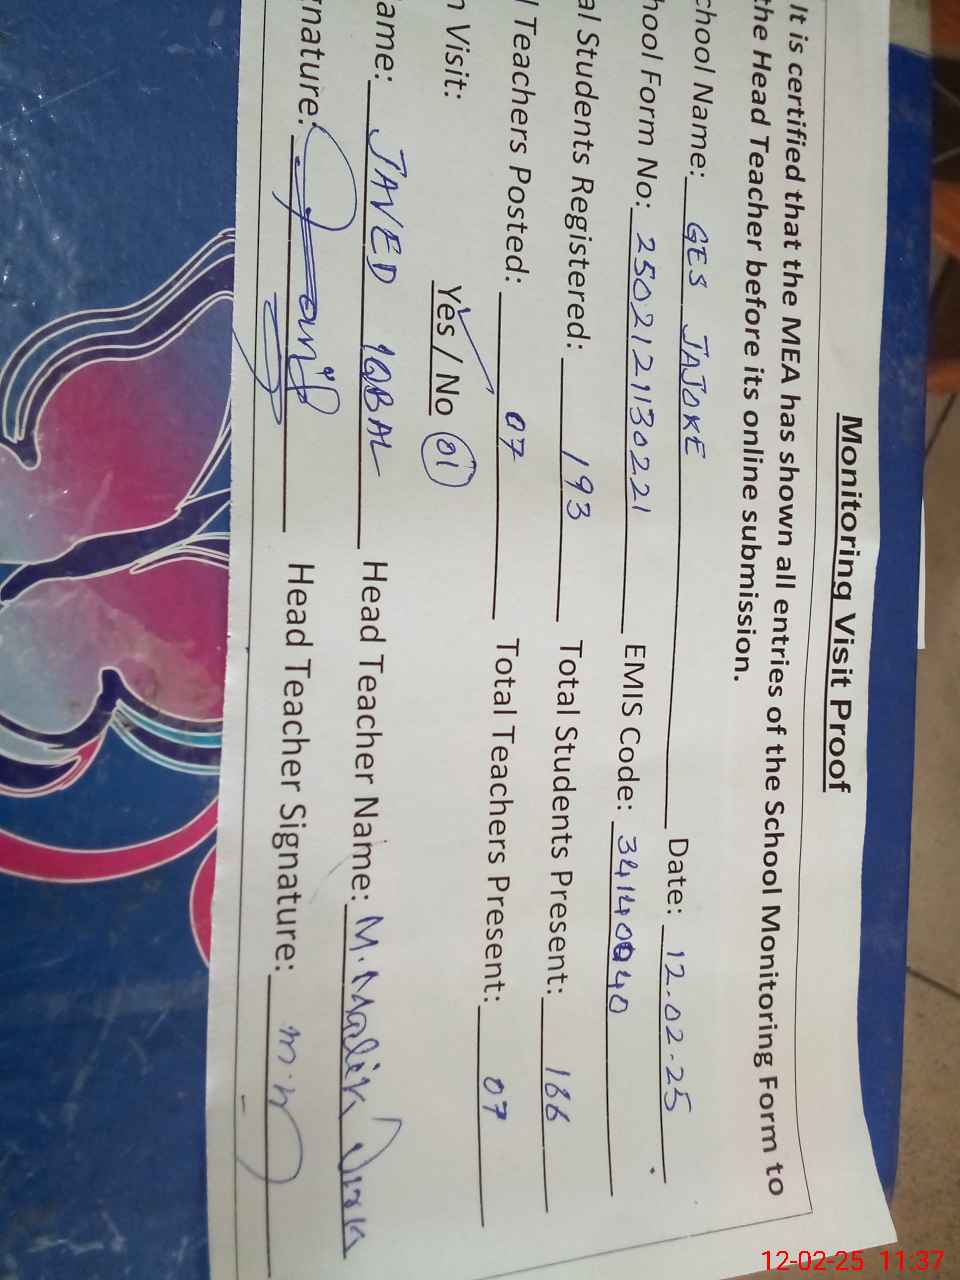 Monitoring Visit Proof
It is certified that the MEA has shown all entries of the School Monitoring Form to
the Head Teacher before its online submission.
chool Name: GES JAJOKE Date: 12.02.25
hool Form No: 25021211130221 EMIS Code: 34140040
al Students Registered: 193 Total Students Present: 166
l Teachers Posted: 07 Total Teachers Present: 07
n Visit: Yes / No 01
ame: JAVED IQBAL Head Teacher Name: M. Malik
gnature: Head Teacher Signature:
12-02-25 11:37